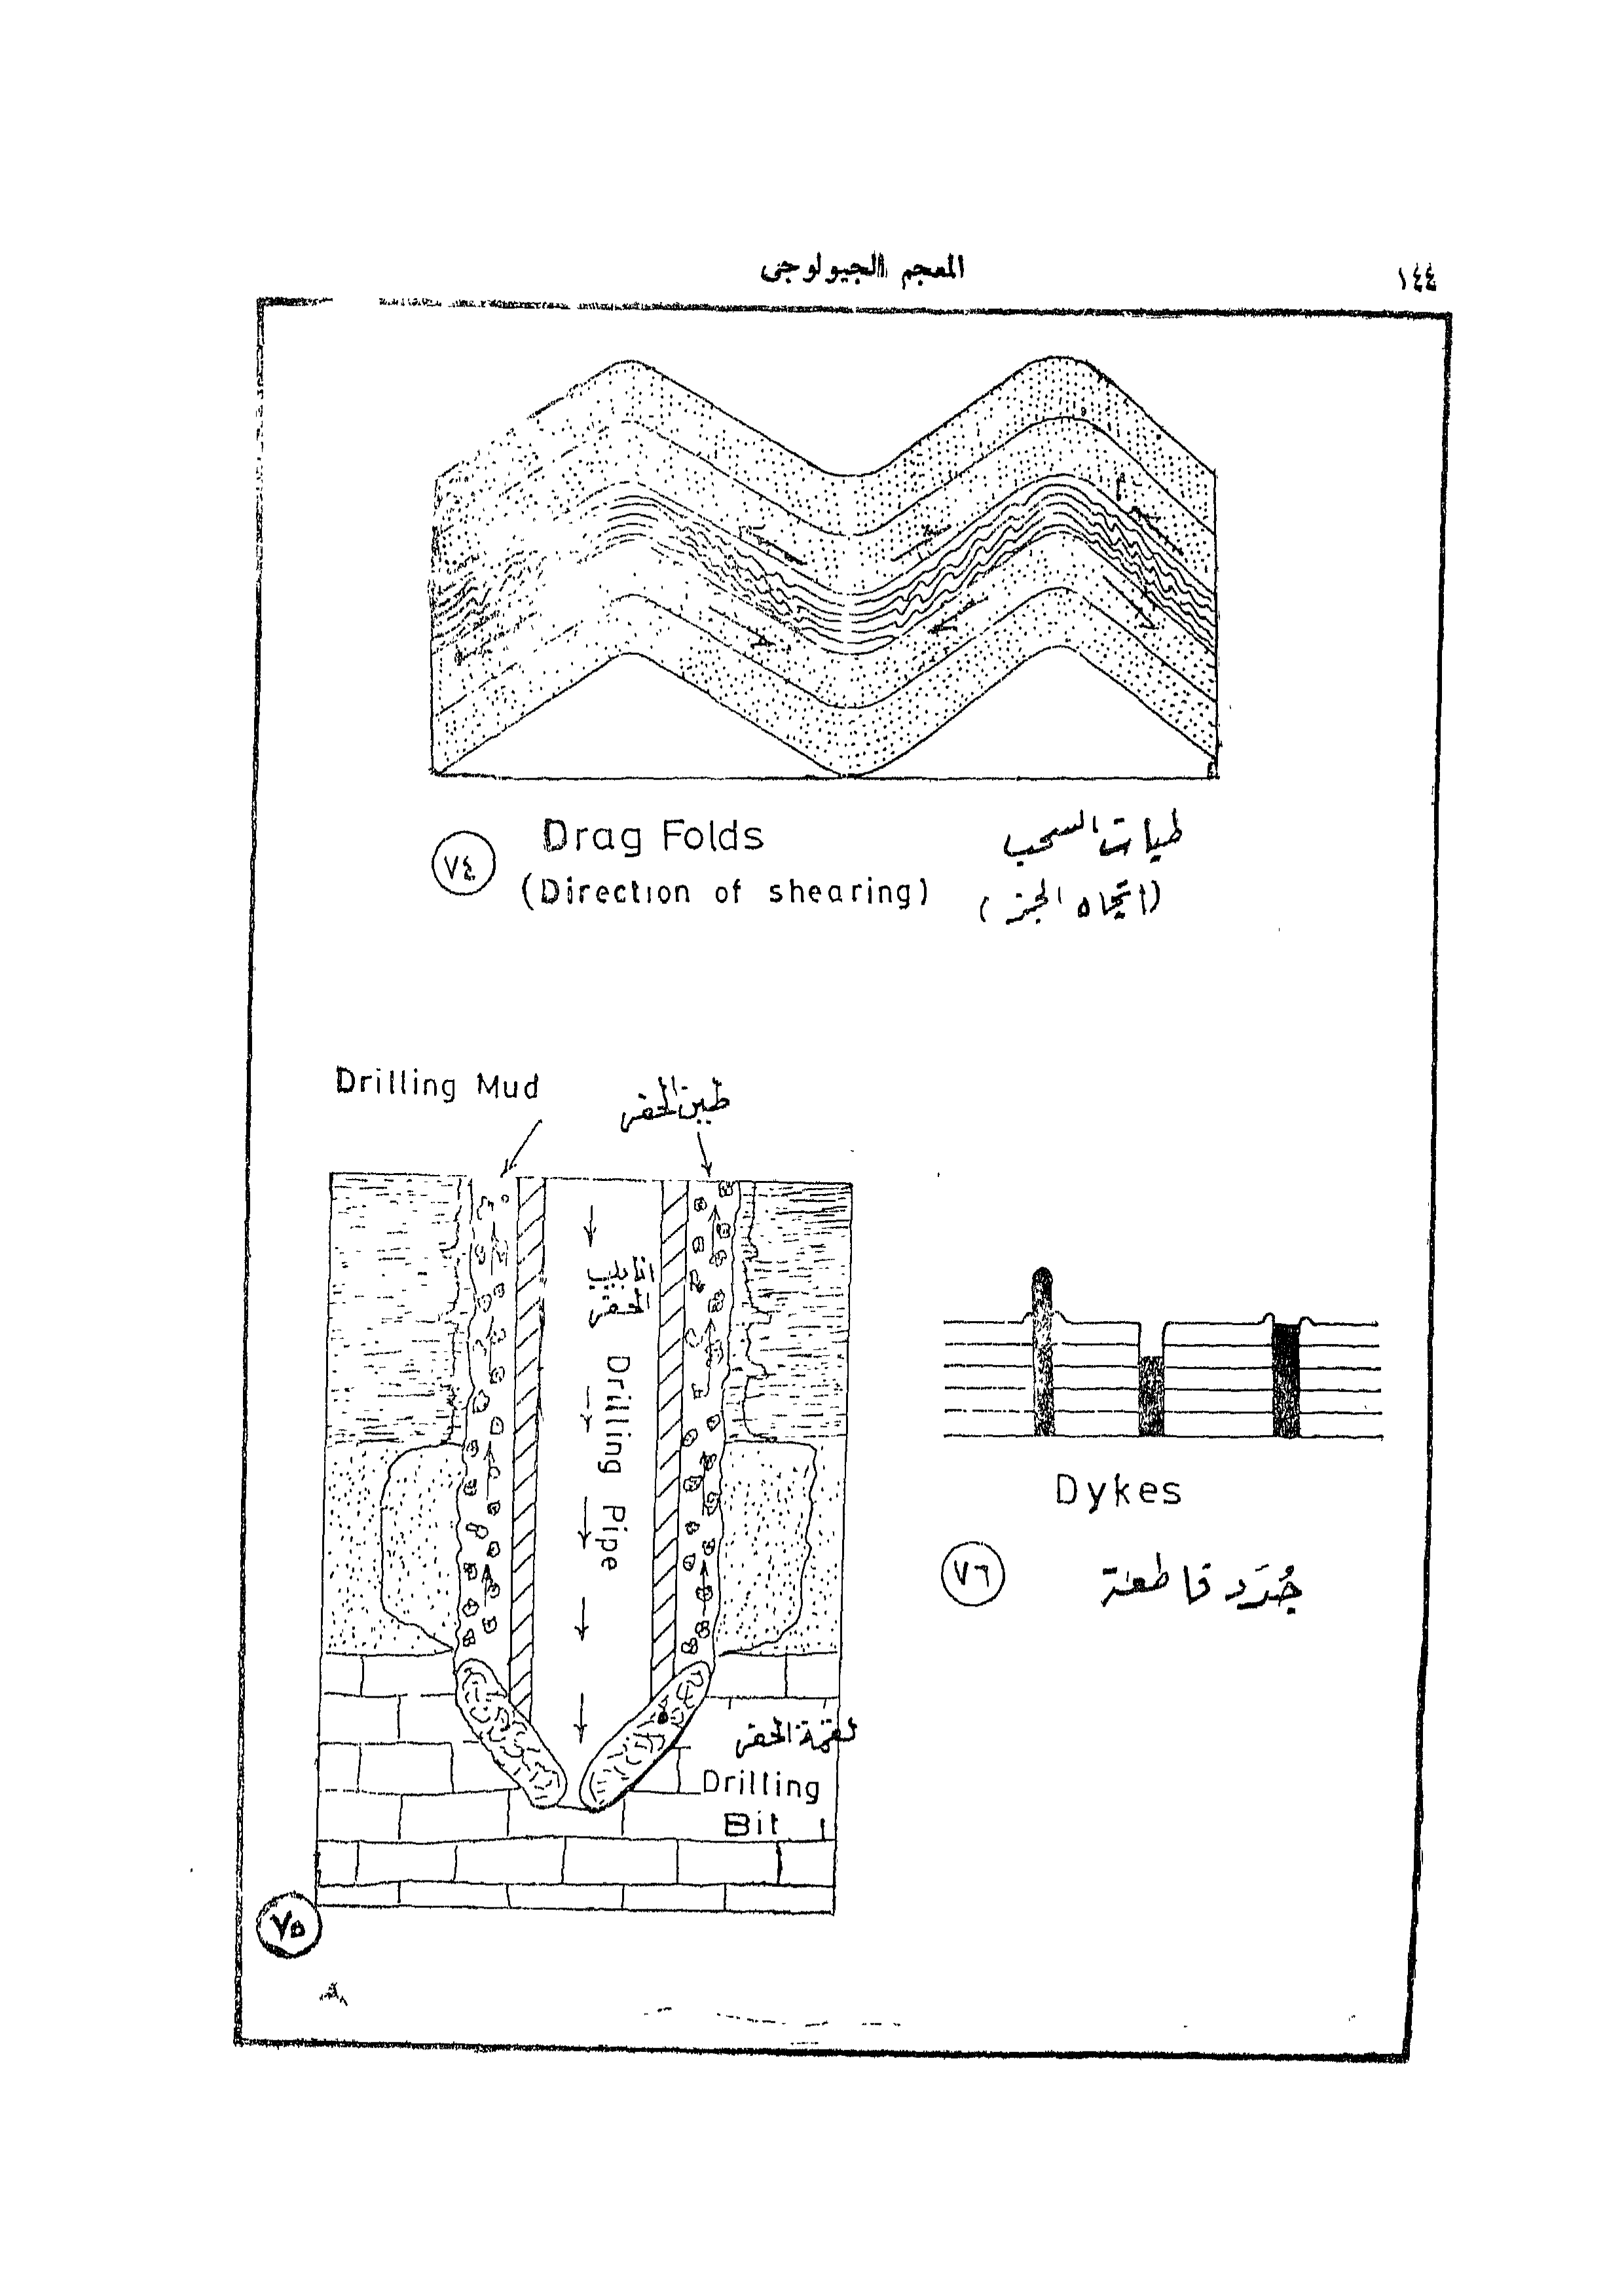 المعجم الجيولوجى
١٤٤
Drag Folds
طيات السحب
٧٤
(Direction of shearing)
(اتجاه الجز)
Drilling Mud
طين الحفر
أنابيب
الحفر
Drilling Pipe
لقمة الحفر
Drilling
Bit
٧٥
Dykes
٧٦
جُدَد قاطعة